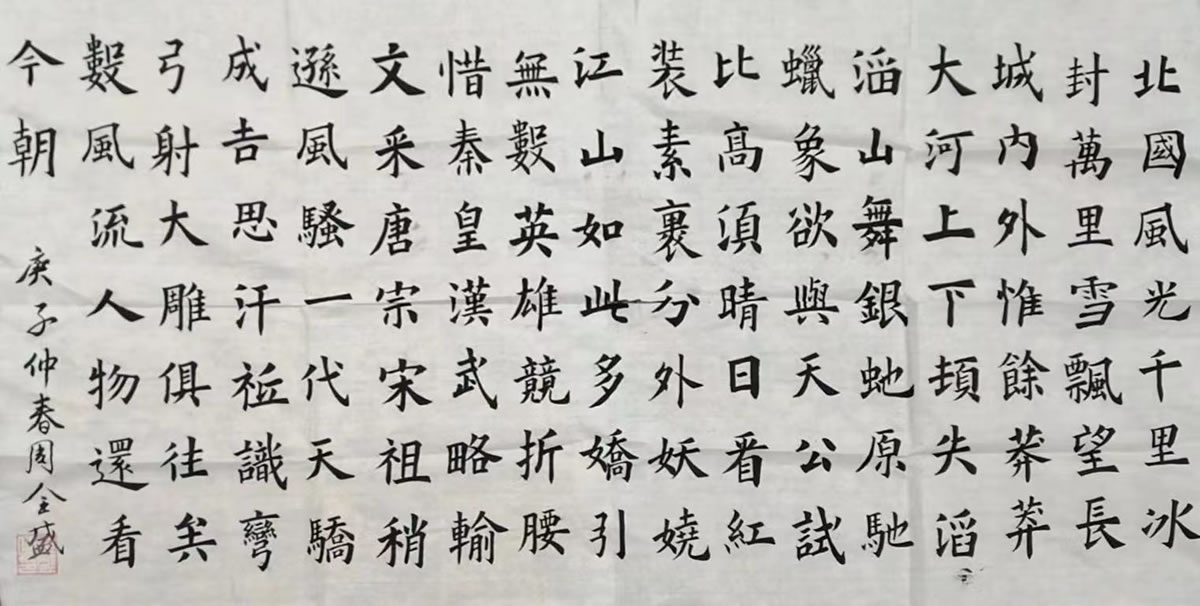 北國風光千里冰
封萬里雪飄望長
城内外惟餘莽莽
大河上下頓失滔
滔山舞銀虵原馳
蠟象欲與天公試
比高須晴日看紅
装素裹分外妖嬈
江山如此多嬌引
無數英雄競折腰
惜秦皇漢武略輸
文采唐宗宋祖稍
遜風騷一代天驕
成吉思汗祗識彎
弓射大雕俱往矣
數風流人物還看
今朝
庚子仲春周全盛